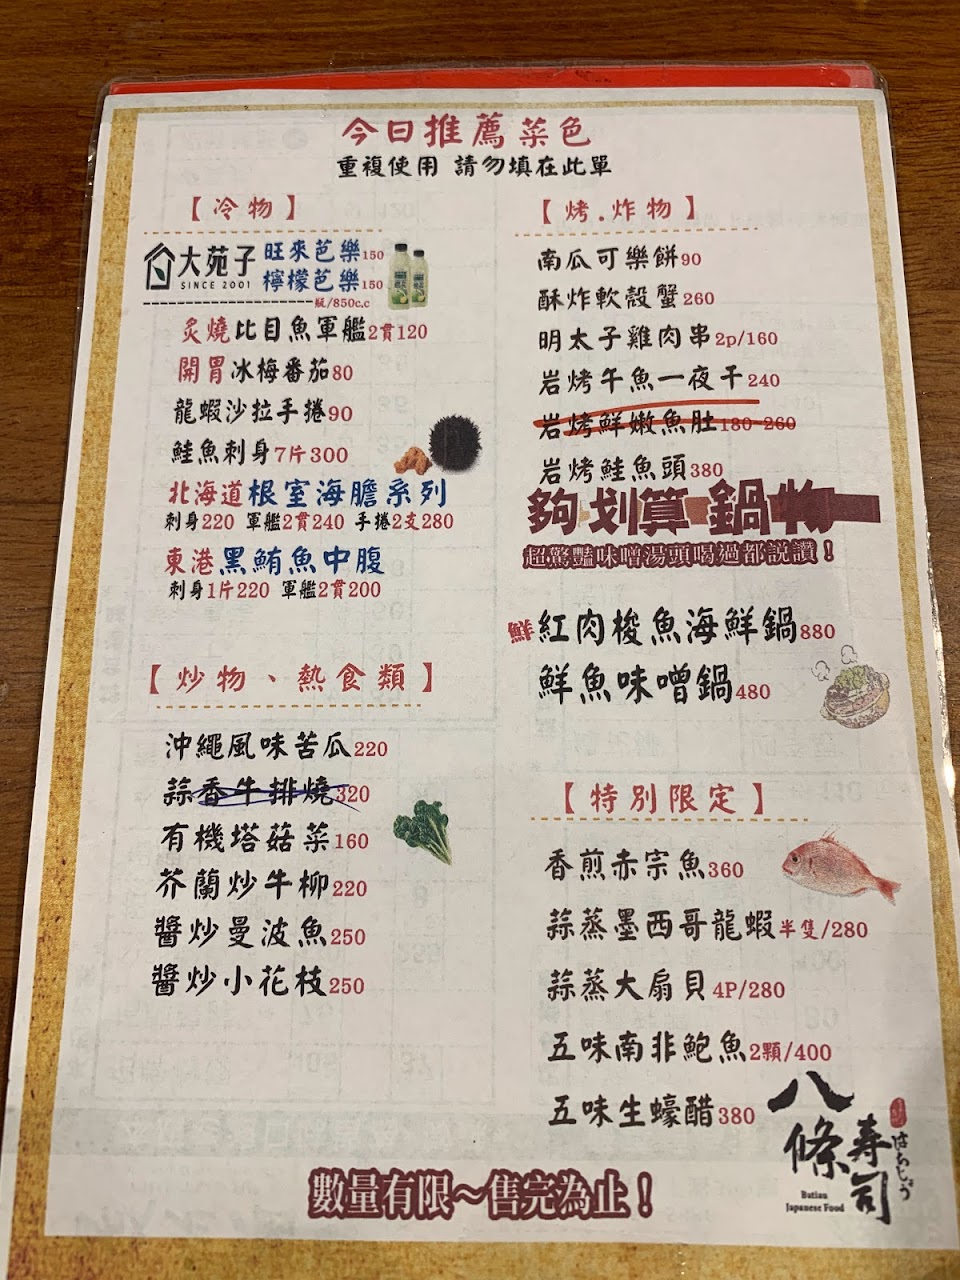 今日推薦菜色
重複使用 請勿填在此單
【冷物】
大苑子
SINCE 2001
旺來芭樂150
檸檬芭樂150
瓶/850c.c
炙燒比目魚軍艦2貫120
開胃冰梅番茄80
龍蝦沙拉手捲90
鮭魚刺身7片300
北海道根室海膽系列
刺身220 軍艦2貫240 手捲2支280
東港黑鮪魚中腹
刺身1片220 軍艦2貫200
【炒物、熱食類】
沖繩風味苦瓜220
蒜香牛排燒320
有機塔菇菜160
芥蘭炒牛柳220
醬炒曼波魚250
醬炒小花枝250
【烤.炸物】
南瓜可樂餅90
酥炸軟殼蟹260
明太子雞肉串2p/160
岩烤午魚一夜干240
岩烤鮮嫩魚肚180-260
岩烤鮭魚頭380
夠划算鍋物
超驚豔味噌湯頭喝過都說讚！
鮮紅肉梭魚海鮮鍋880
鮮魚味噌鍋480
【特別限定】
香煎赤宗魚360
蒜蒸墨西哥龍蝦半隻/280
蒜蒸大扇貝4P/280
五味南非鮑魚2顆/400
五味生蠔醋380
八條壽司
はちじょう
Batiau
Japanese Food
數量有限～售完為止！